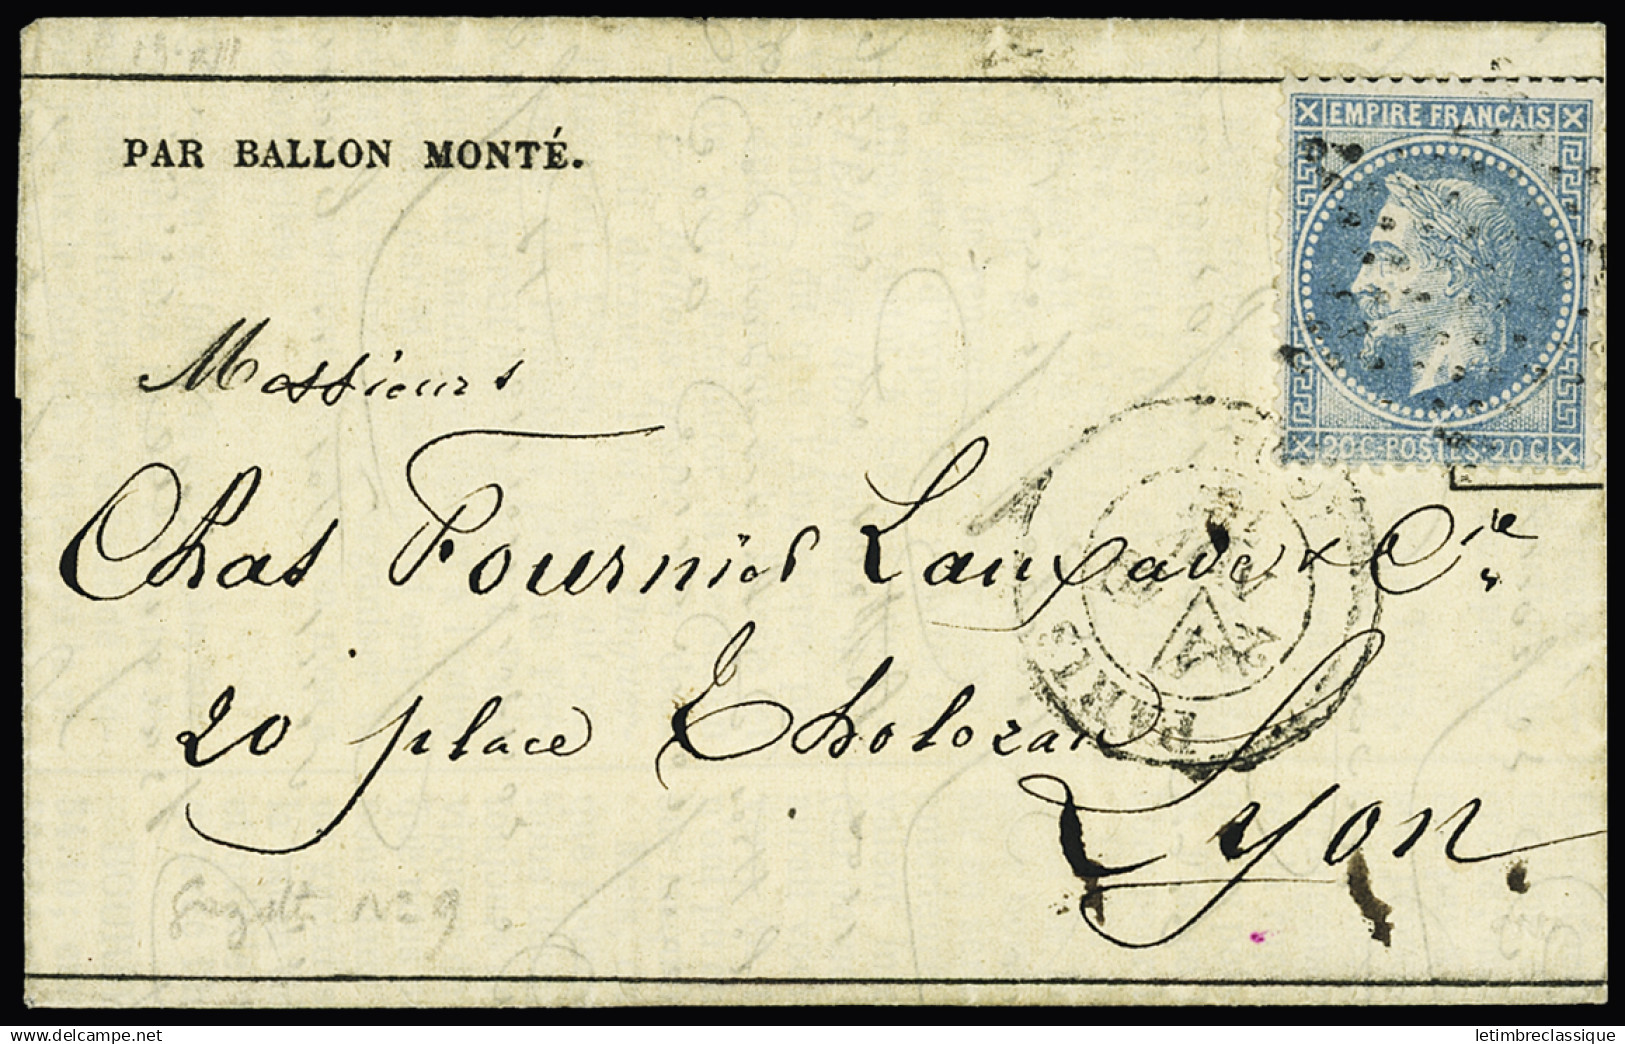 PAR BALLON MONTÉ.
EMPIRE FRANÇAIS
20 C - POSTES - 20 C
Messieurs
Chas Fournier Laupade & Cie
20 place Tholozan
Lyon
PARIS
Gazette No 9
www.delcampe.net
letimbreclassique